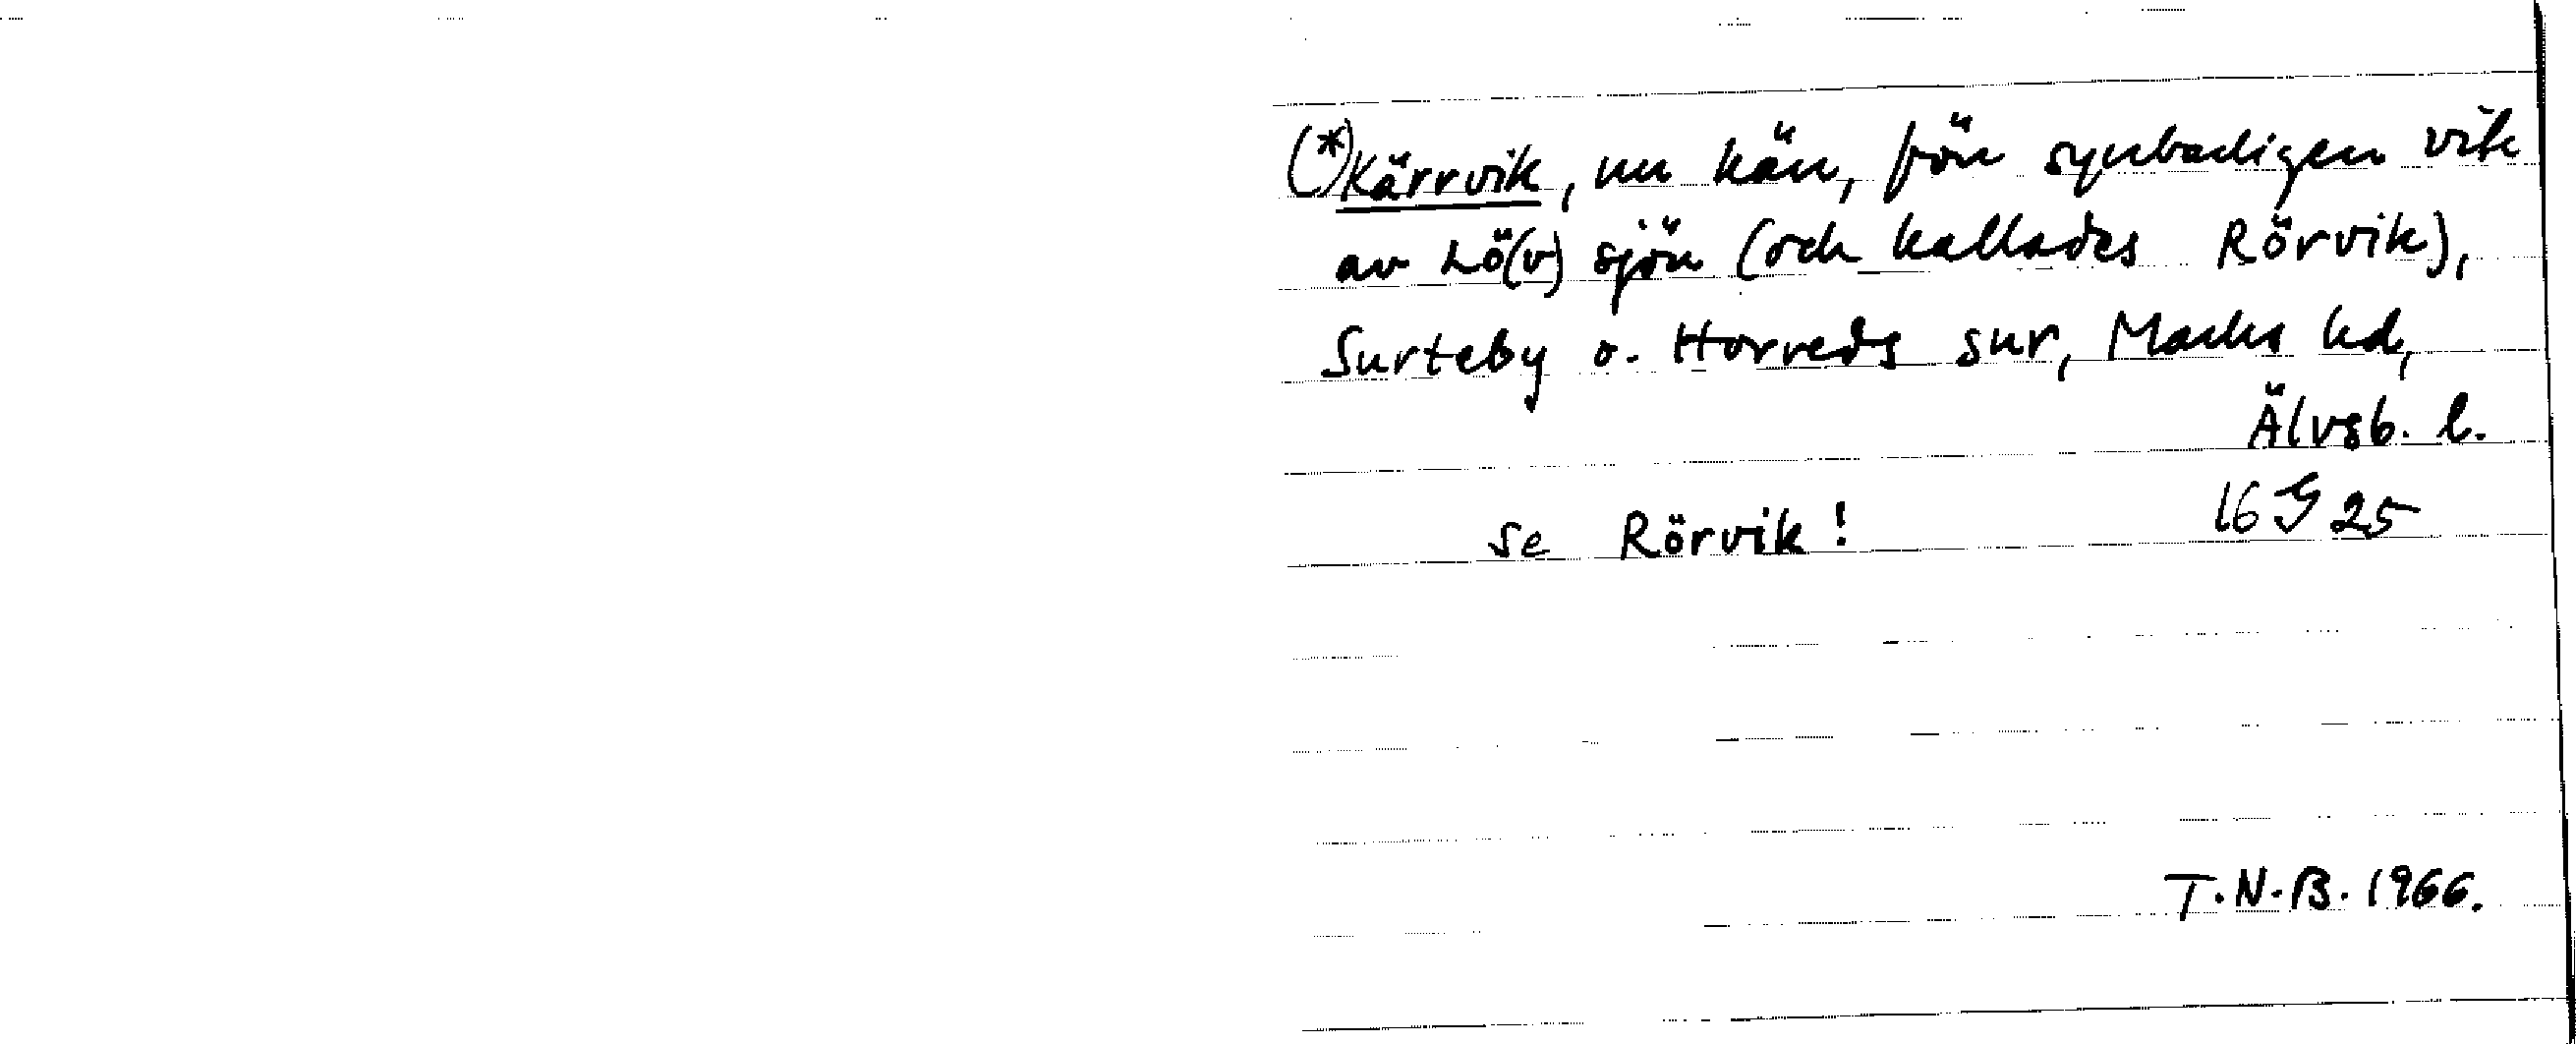 (*)Kärrvik, nu kärr, förr synbarligen vik
av Lö(v)sjön (och kallades Rörvik),
Surteby o. Horreds snr, Marks hd,
Älvsb. l.
se Rörvik! 16 G 25
T.N.B. 1966.